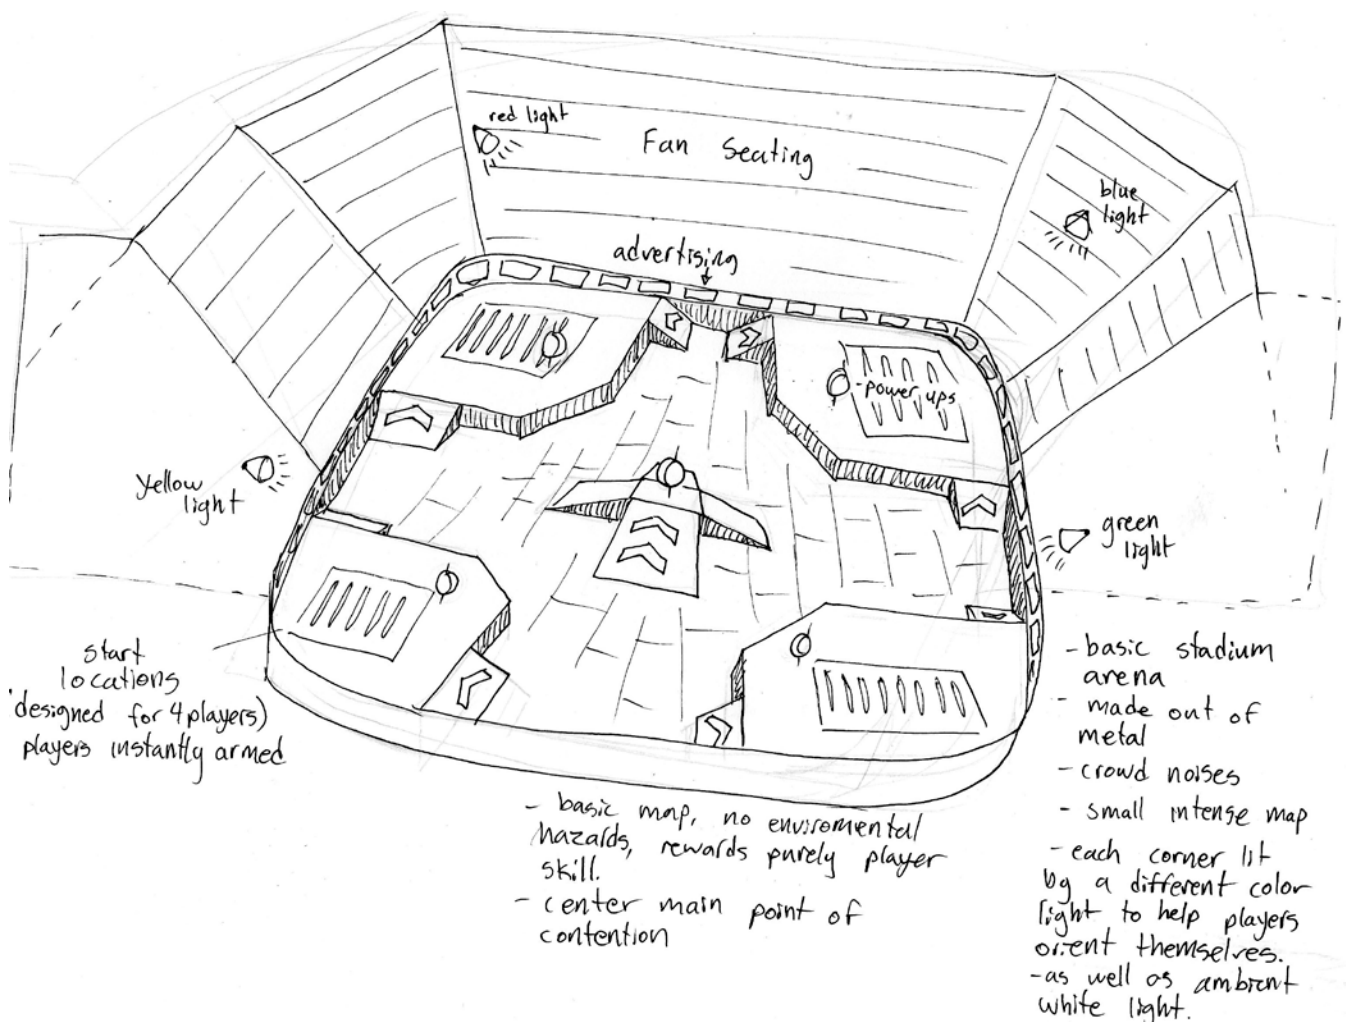 red light
Fan Seating
blue
light
advertising
-power ups
yellow
light
green
light
start
locations
designed for 4 players)
players instantly armed
- basic map, no enviromental
hazards, rewards purely player
skill.
- center main point of
contention
- basic stadium
arena
- made out of
metal
- crowd noises
- small intense map
- each corner lit
by a different color
light to help players
orient themselves.
- as well as ambient
white light.